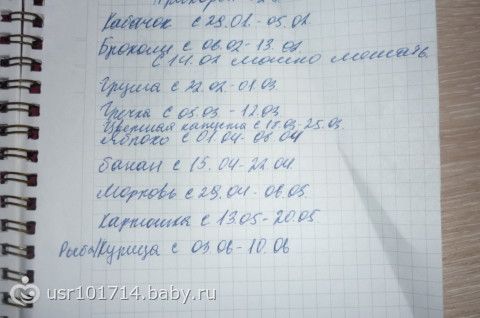 Кабачок с 29.01.-05.02.
Броколи с 06.02-13.02.
с 14.02 можно мешать.
Груша с 22.02-01.03.
Гречка с 05.03-12.03
Цветная капуста с 18.03-25.03.
Яблоко с 01.04-08.04
Банан с 15.04-22.04.
Морковь с 29.04-06.05.
Картошка с 13.05-20.05
Рыба/Курица с 03.06-10.06
usr101714.baby.ru